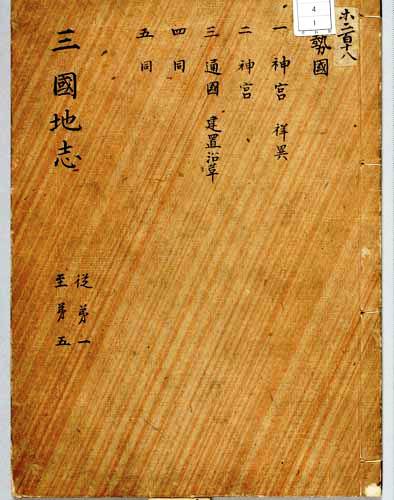 ホ二百十八
勢國
一 神宮 祥異
二 神宮
三 通國 建置沿革
四 同
五 同
三國地志
從第一
至第五
4
1